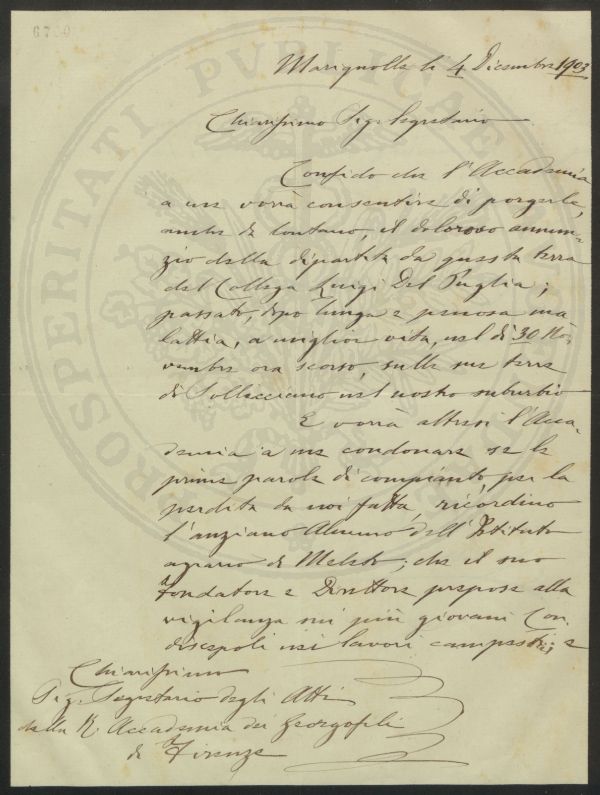 6700
PROSPERITATI PUBLICAE
Marignolle li 4 Dicembre 1903
Chiarissimo Sig. Segretario
Confido che l'Accademia
a me vorrà consentire di porgerle,
anche da lontano, il doloroso annun-
zio della dipartita da questa terra
del Collega Luigi Del Puglia;
passato, dopo lunga e penosa ma
lattia, a miglior vita, nel dì 30 No-
vembre ora scorso, nelle sue terre
di Sollicciano nel nostro suburbio
E vorrà altresì l'Acca-
demia a me condonare se le
prime parole di compianto, per la
perdita da noi fatta, ricordino
l'anziano Alunno dell'Istituto
agrario di Meleto; che il suo
Fondatore e Direttore prepose alla
vigilanza sui più giovani Con-
discepoli nei lavori campestri e
Chiarissimo
Sig. Segretario degli Atti
della R. Accademia dei Georgofili
di Firenze